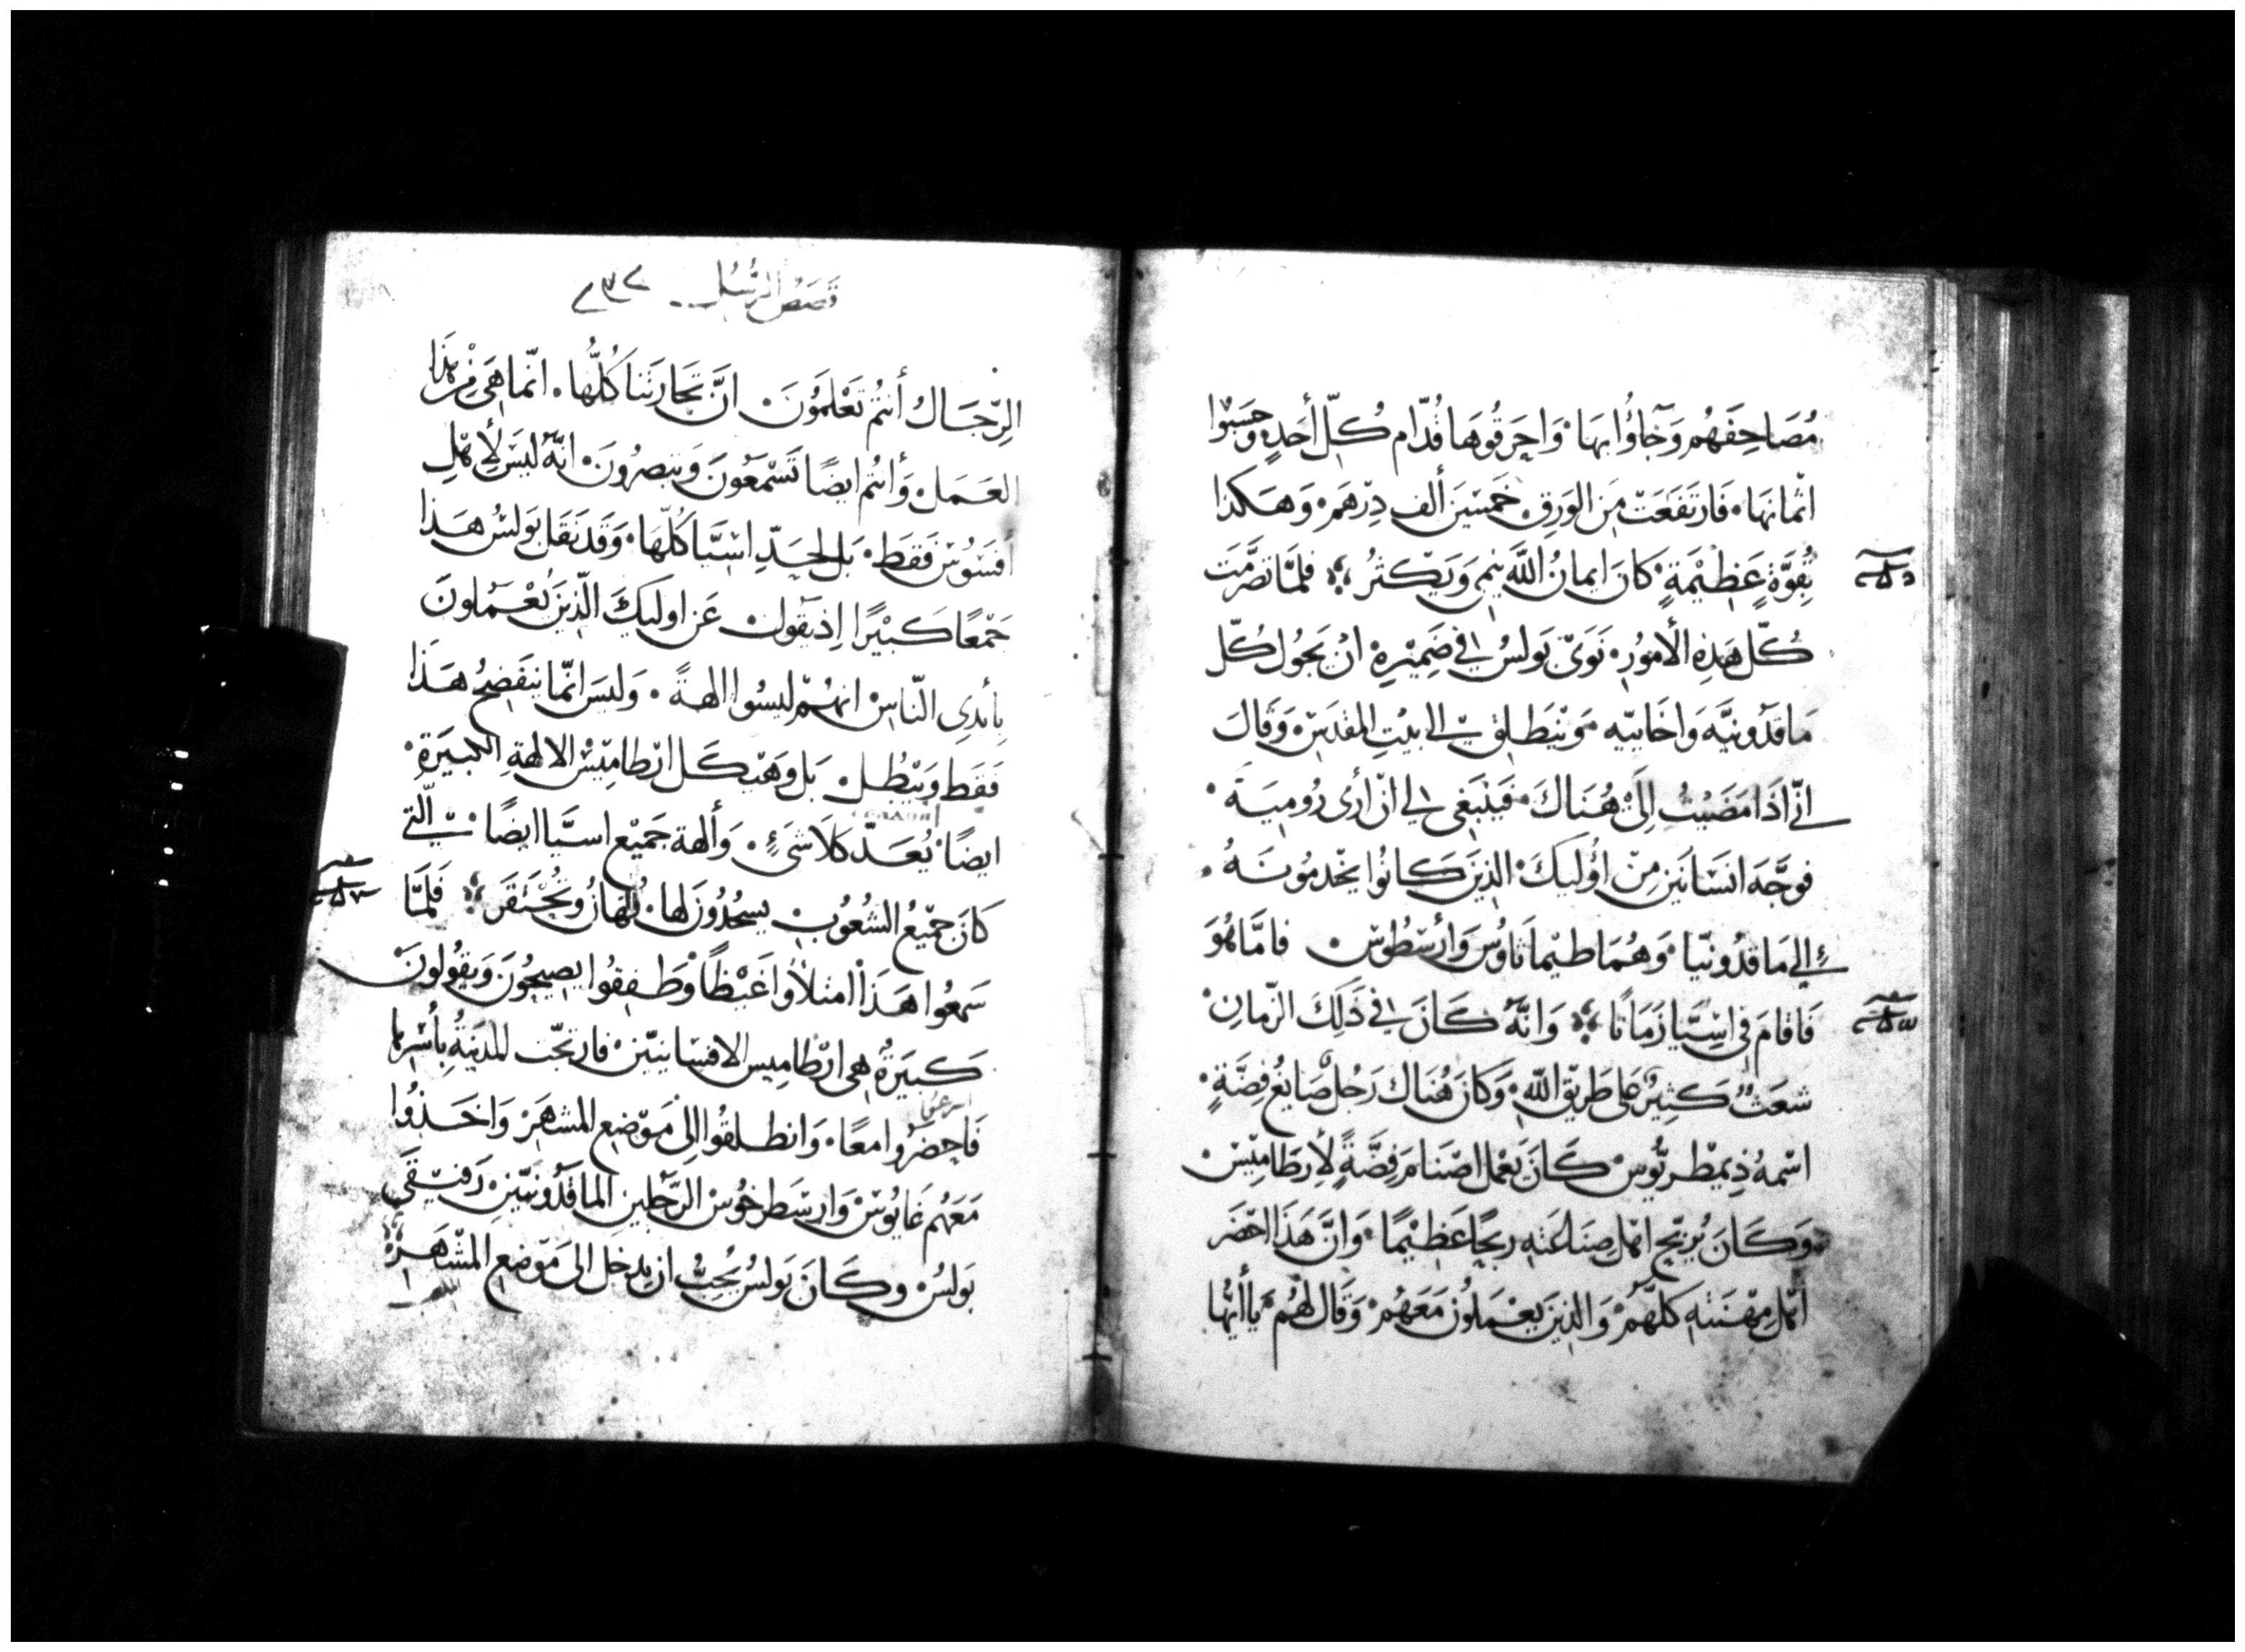 مُصَاحِفَهُم وَجَاؤُا بِهَا. وَاحرَقُوهَا قُدّام كُلّ أحَدٍ وحَسَبُوا
اثمانَهَا. فَارتَفَعَتْ مِنَ الوَرِق خَمْسَين ألف دِرْهَم. وَهَكَذا
بِقوَّةٍ عَظِيْمَةٍ. كانَ ايمانُ اللَّه ينمى وَيَكثُرُ فلمَّا تصَرَّمَتْ
كُلّ هَذِهِ الأمُورِ. نَوَى بَولسُ في ضَمِيْرِهِ انْ يَجُول كُلّ
مَاقدَونيَّه وَاخَاييّه وينطَلِق الى بَيْتِ المقدَسِ. وَقَالَ
اني اذَا مَضَيتُ الَى هُنَاكَ. فيَنْبَغى لي ان أرى رُومِيَة.
فوجَّه انسَانَين مِنْ اوُليكَ. الذِينَ كانُوا يخدمُونَهُ.
الي مَاقدُونيّا. وَهُمَا طيماثاوُس وَأرسْطوُسْ. فامَّا هُوَ
فَاقامَ فى اسِيَّا زمَانًا وَانَّه كَانَ في ذَلِكَ الزّمانِ
شعَثٌ كَثِيرٌ عَلى طَرِيقِ اللَّهِ. وَكَانَ هُنَاك رَجُلٌ صَايغُ فِضَّةٍ.
اسْمهُ ذِيمِطْريُّوس. كَانَ يَعْمل اصْنامَ فِضَّةٍ لأرطَاميْسْ
وَكَانَ يُربّح اهْل صِنَاعَتهِ ربحًا عَظِيْمًا. وَانَّ هَذَا احْضَر
أهْل مِهْنَتهِ كلهُّمْ. وَالذِينَ يَعْمَلُونَ مَعَهُمْ. وَقَال لهُم يَا أيُّهَا
قصَصُ الرسُل
الرِّجَالُ أنتُم تَعْلَمُونَ. انَّ تَجَارتنَا كُلُّهَا. انّما هىَ مِنْ هَذا
العَمَل. وَأنتُم ايضًا تَسْمَعُونَ وَتبصِرُونَ. انَّهُ ليسَ لأهْل
أفسُوسْ فقَط. بَل لحَدِّ اسْيَّا كُلّهَا. وَقَد نَقَل بَولسُ هَذا
جَمْعًا كَبْيرًا اِذ يقَول عَن اوليكَ الّذِينَ يُعْمَلونَ
بِأيْدِى النّاسْ انهُمْ ليسُوا الهةً. وَليسَ انّما يَنفَضِحُ هَذَا
فقَط وَيَبْطُل. بَل وهَيكَل ارْطامِيْسْ الالهةِ الكبيَرَةِ.
ايضًا. يُعَدّ كَلَا شَىءٍ. وَألهة جَميْع اسيَّا ايضًا. التى
كانَ جميْعُ الشُعُوبِ يسجُدُونَ لها. تُهانُ وتُحْتَقَر فَلمَّا
سَمعُوا هَذَا امتلأوا غَيْظًا وَطَفِقُوا يصيحُونَ وَيقُولونْ
كَبيَرةٌ هى ارْطاميس الافسَانيّين. فارتجَّت المدينَةُ بأسْرِهَا
فَاحضَرُوا معًا. وَانطلقُوا الِىَ مَوْضِعِ المشهَر. وَاخَذُوا
مَعَهُم غَايُوسْ وَارسْطرخُوسْ الرَّجُلين الماقدُونيّين. رَفيْقَى
بَولسْ. وكَانَ بَولسُ يُحبُّ ان يدخل الى مَوْضع المشْهَر